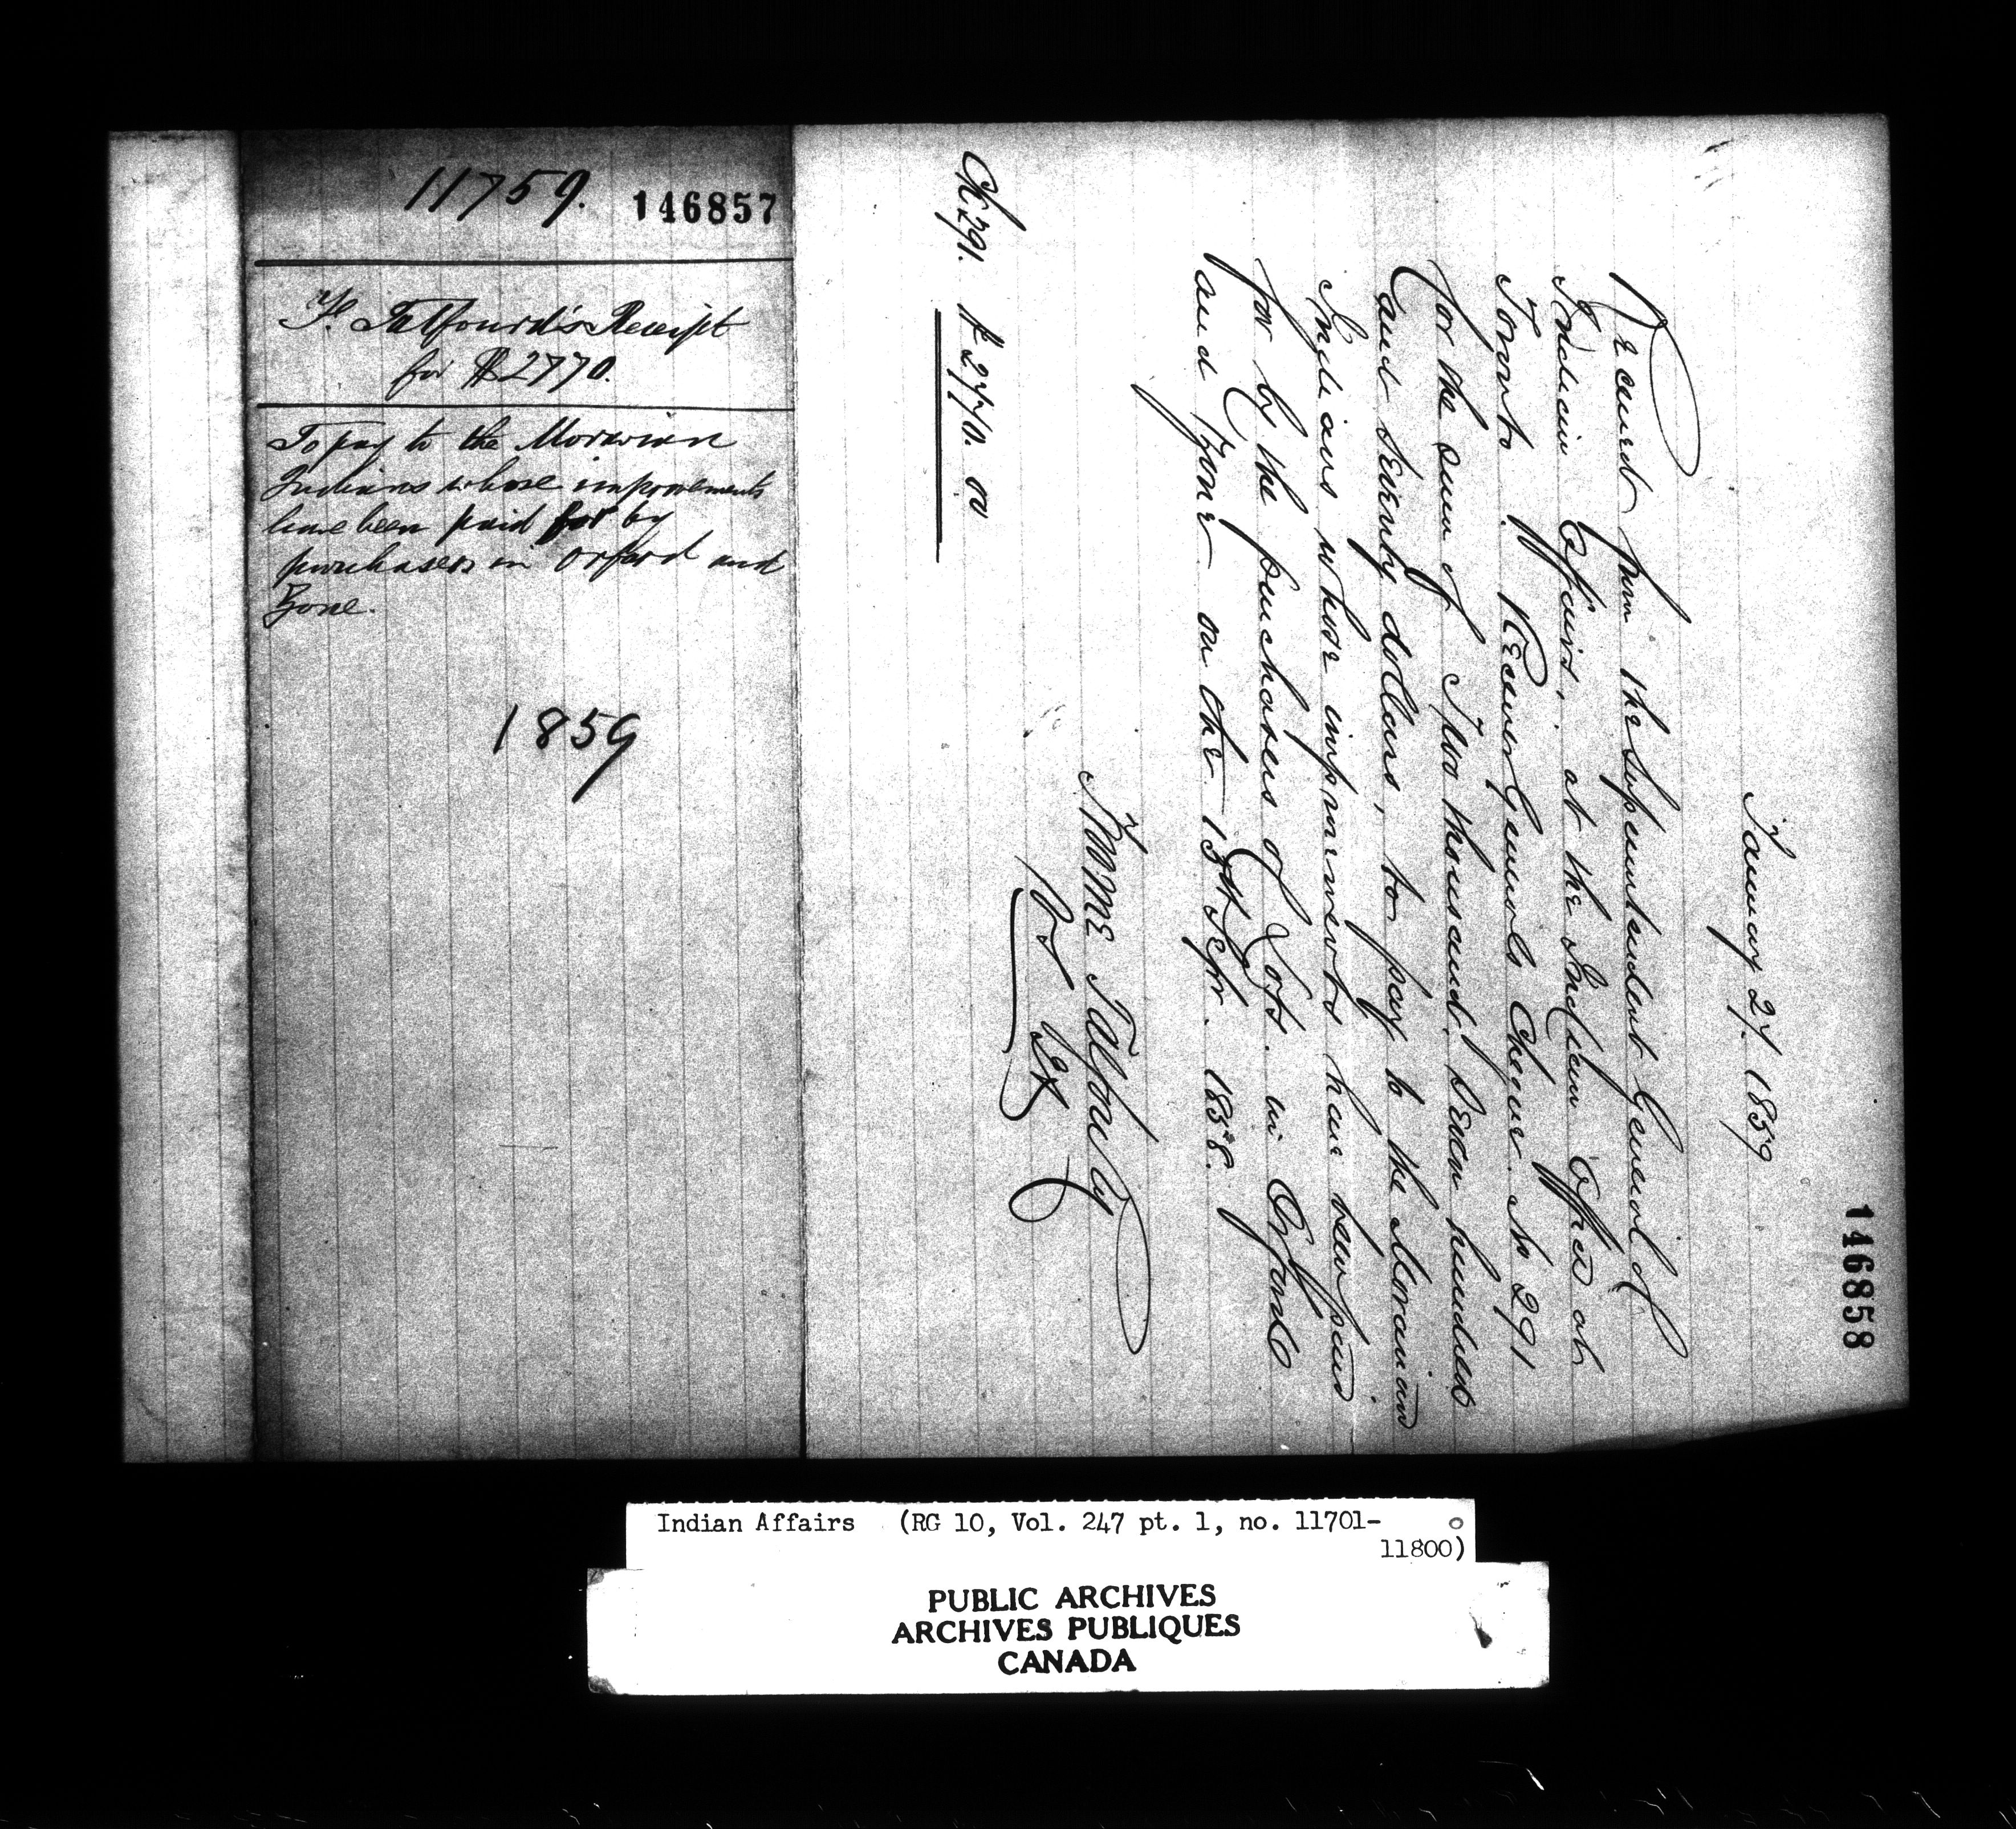 11759.
146857
Fd. Talfourd's Receipt
for $2770.
To pay to the Moravian
Indians whose improvements
have been paid for by
purchasers in Orford and
Zone.
1859
146858
January 27. 1859
Received from the Superintendent General of
Indian Affairs, at the Indian Office at
Toronto. Receiver Generals Cheque. No 291
for the sum of Two thousand, seven hundred
and seventy dollars, to pay to the Moravian
Indians whose improvements have been paid
for by the purchasers of Lots. in Orford
and Zone on the 1st Sepr. 1858.
Froome Talfourd
Ck 291. $2770.00
Indian Affairs (RG 10, Vol. 247 pt. 1, no. 11701-
11800)
PUBLIC ARCHIVES
ARCHIVES PUBLIQUES
CANADA